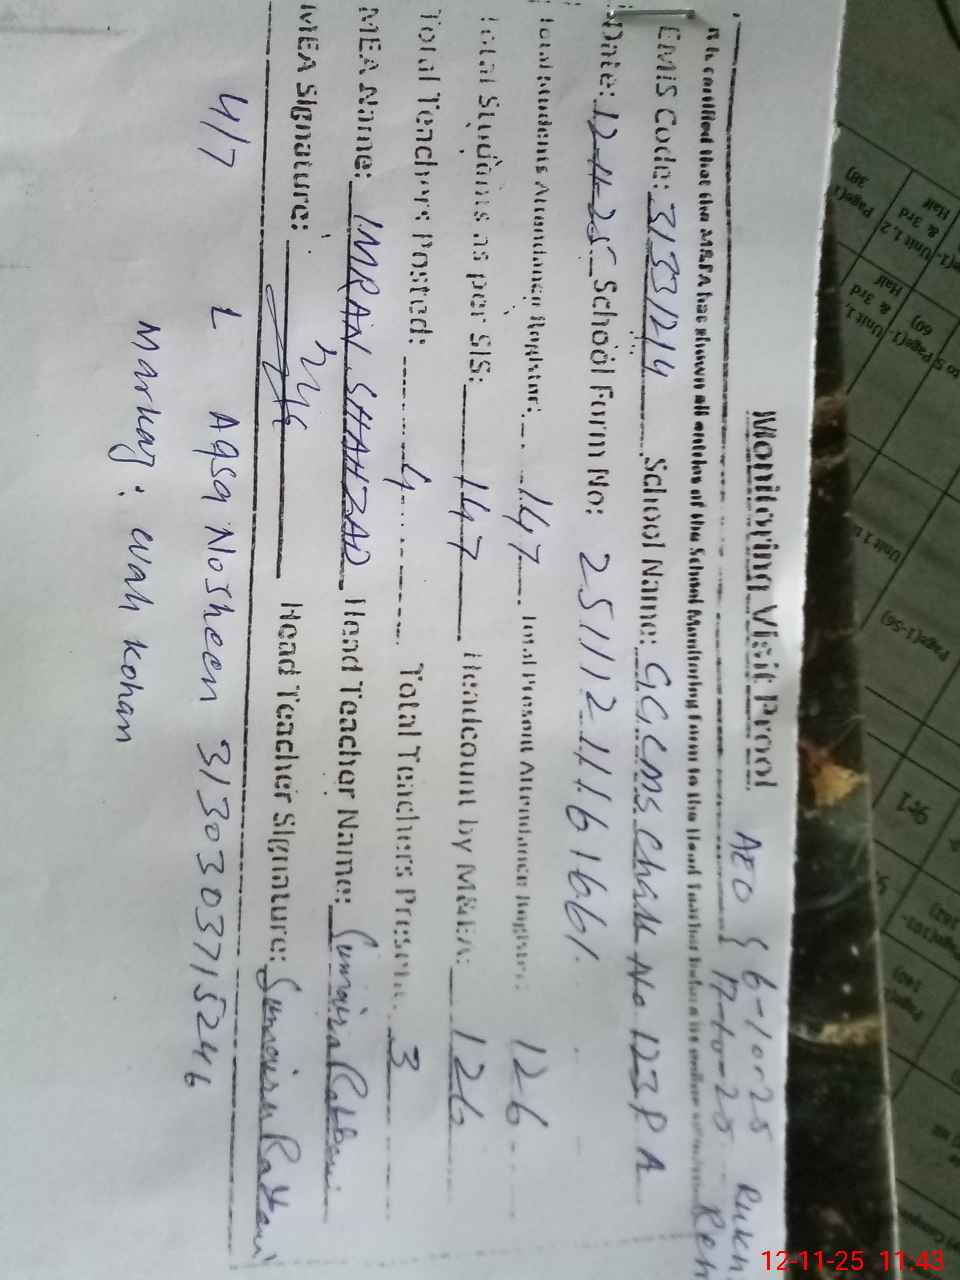 Monitoring Visit Proof
AEO { 6-10-25 Rukh
17-10-25 Reh
It is certified that the M&EA has shown all entries of the School Monitoring Form to the Head Teacher before its
EMIS Code: 31331214 School Name: GGCMS Chak No 123 P A
Date: 12-11-25 School Form No: 25111211161661
Total Students Attendance Register: 147 Total Present Attendance Register: 126
Total Students as per SIS: 147 Headcount by M&EA: 126
Total Teachers Posted: 4 Total Teachers Present: 3
MEA Name: IMRAN SHAHZAD Head Teacher Name: Sumaira Rabbani
MEA Signature: Head Teacher Signature: Sumaira Rabbani
4/7 L Aqsa Nosheen 3130303715246
Markaz: Wah Kohan
Page(1-38)
Unit 1, 2 & 3rd Half
Page(1-60)
Unit 1, & 3rd Half
Page(1-56)
12-11-25 11:43